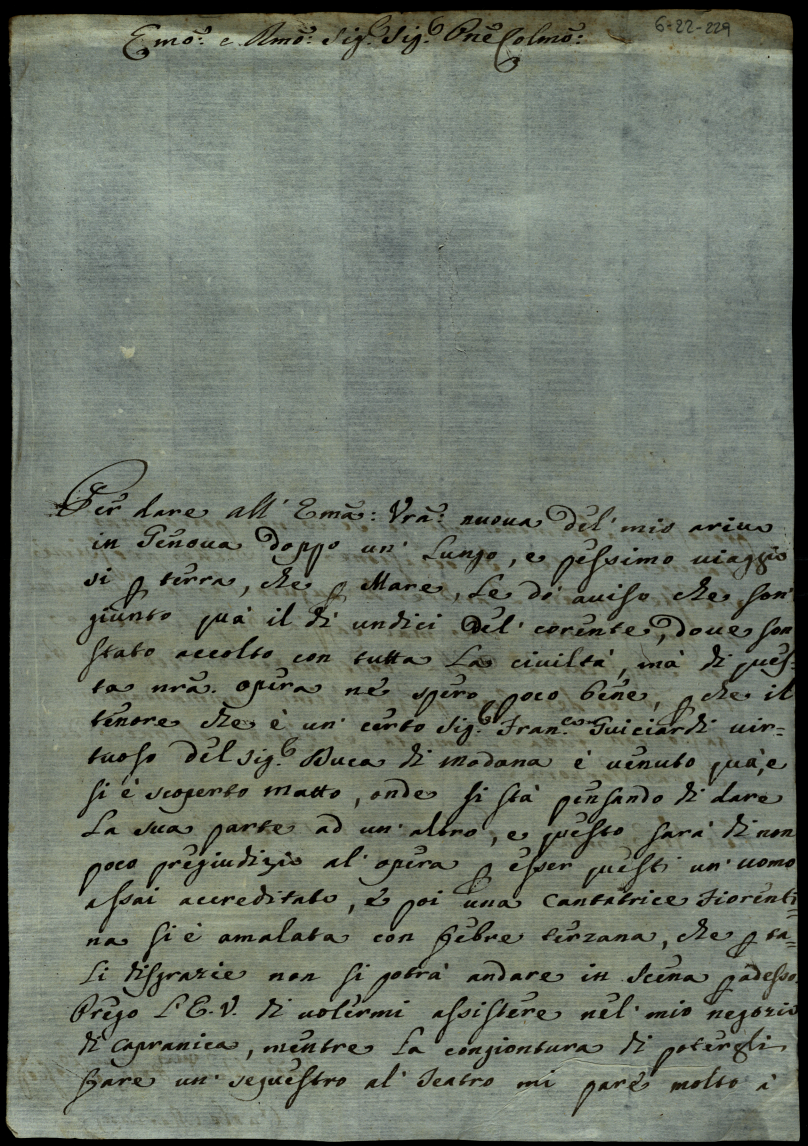 6-22-229
Emo: e Rmo: Sig.r Sig.r Pne Colmo:
Per dare all' Emã: Vrã: nuova del' mio ariuo
in Genoua doppo un' lungo, e pessimo uiaggio
si p terra, che p Mare, Le dò auiso che son'
giunto quà il dì undici del' corente, doue son
stato accolto con tutta La ciuiltà, mà di ques-
ta nrã. opera ne spero poco bene, p che il
tenore che è un' certo Sig.r Fran.co Guiciardi uir=
tuoso del Sig.r Duca di Modana è uenuto quà, e
si è scoperto matto, onde si stà pensando di dare
La sua parte ad un' altro, e questo sarà di non
poco pregiudizio al' opera p esser questi un' uomo
assai accreditato, e poi una Cantatrice Fiorenti=
na si è amalata con febre terzana, che p ta=
Li disgrazie non si potrà andare in scena p adesso.
Prego L'E.V. di uolermi assistere nel' mio negozio
di Capranica, mentre La congiontura di potergli
fare un' sequestro al' Teatro mi pare molto à